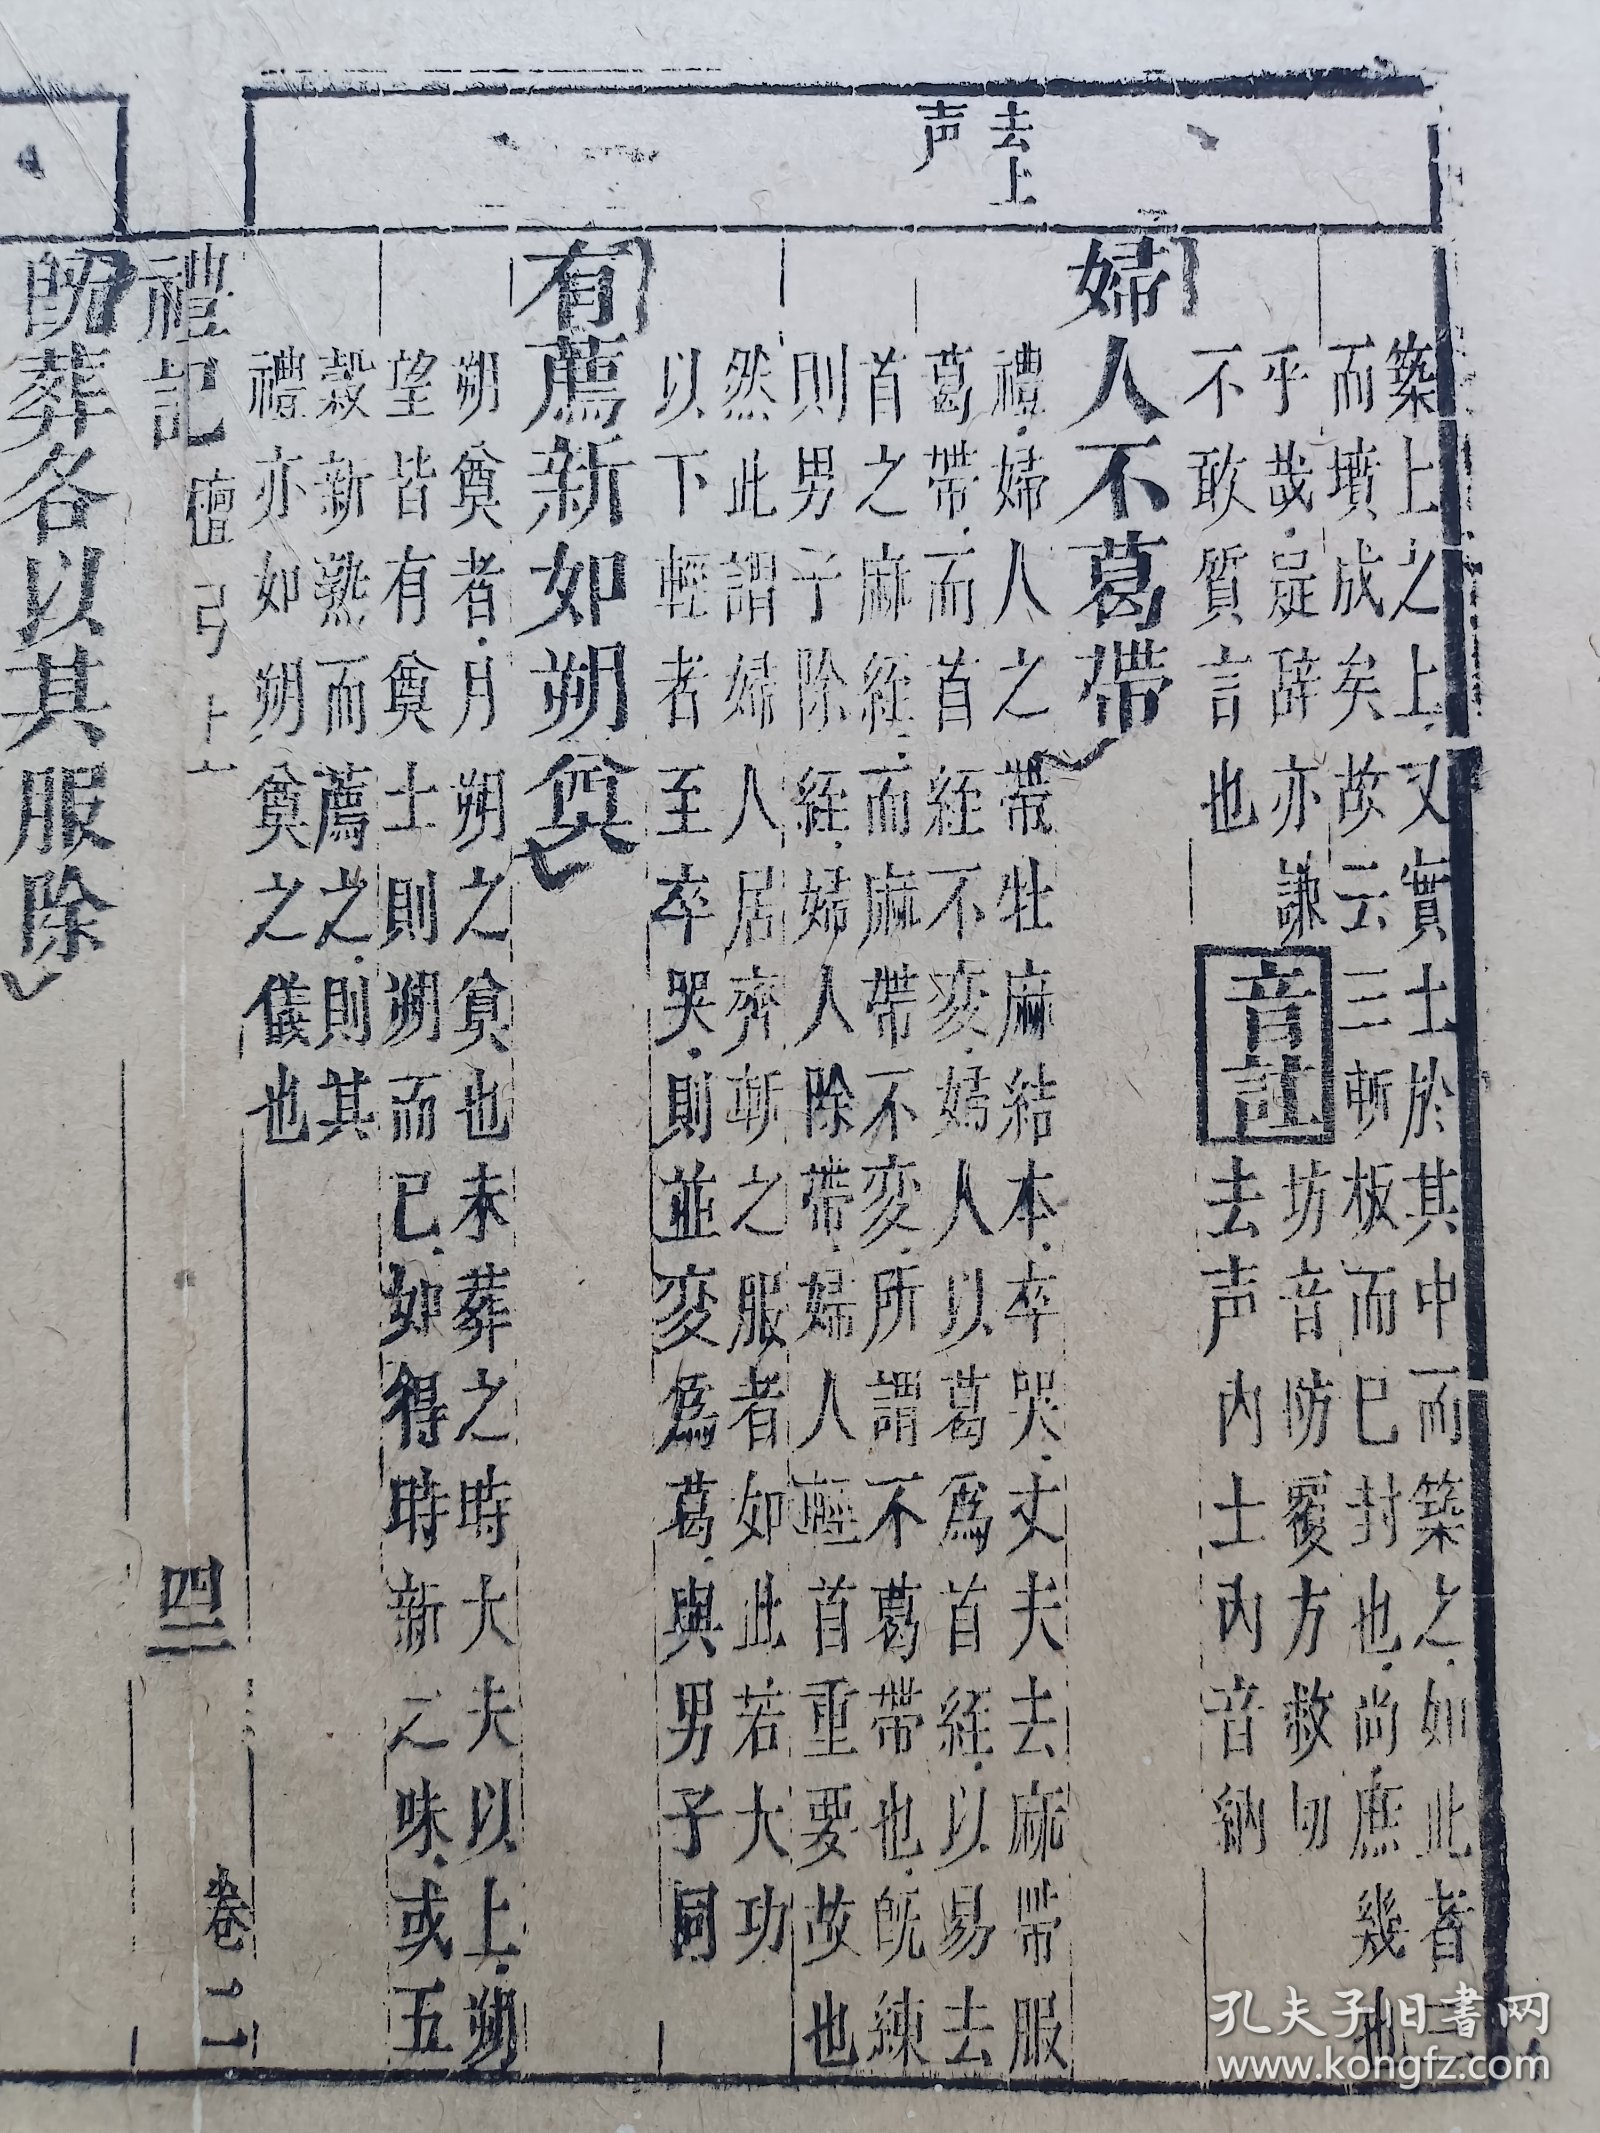 去上
声
築上之上又實土於其中而築之如此者三
而墳成矣故云三斬板而已封也尚庶幾也
乎哉疑辞亦謙
不敢質言也
音註
坊音防覆方救切
去声内土内音納
婦人不葛帶
禮婦人之帶牡麻結本卒哭丈夫去麻帶服
葛帶而首絰不変婦人以葛為首絰以易去
首之麻絰而麻帶不変所謂不葛帶也既練
則男子除絰婦人除帶婦人輕首重要故也
然此謂婦人居齊斬之服者如此若大功
以下輕者至卒哭則並変為葛與男子同
有薦新如朔奠
朔奠者月朔之奠也未葬之時大夫以上朔
望皆有奠士則朔而已如得時新之味或五
穀新熟而薦之則其
禮亦如朔奠之儀也
禮記
檀弓上
四二
卷二
既葬各以其服除
孔夫子旧書网
www.kongfz.com